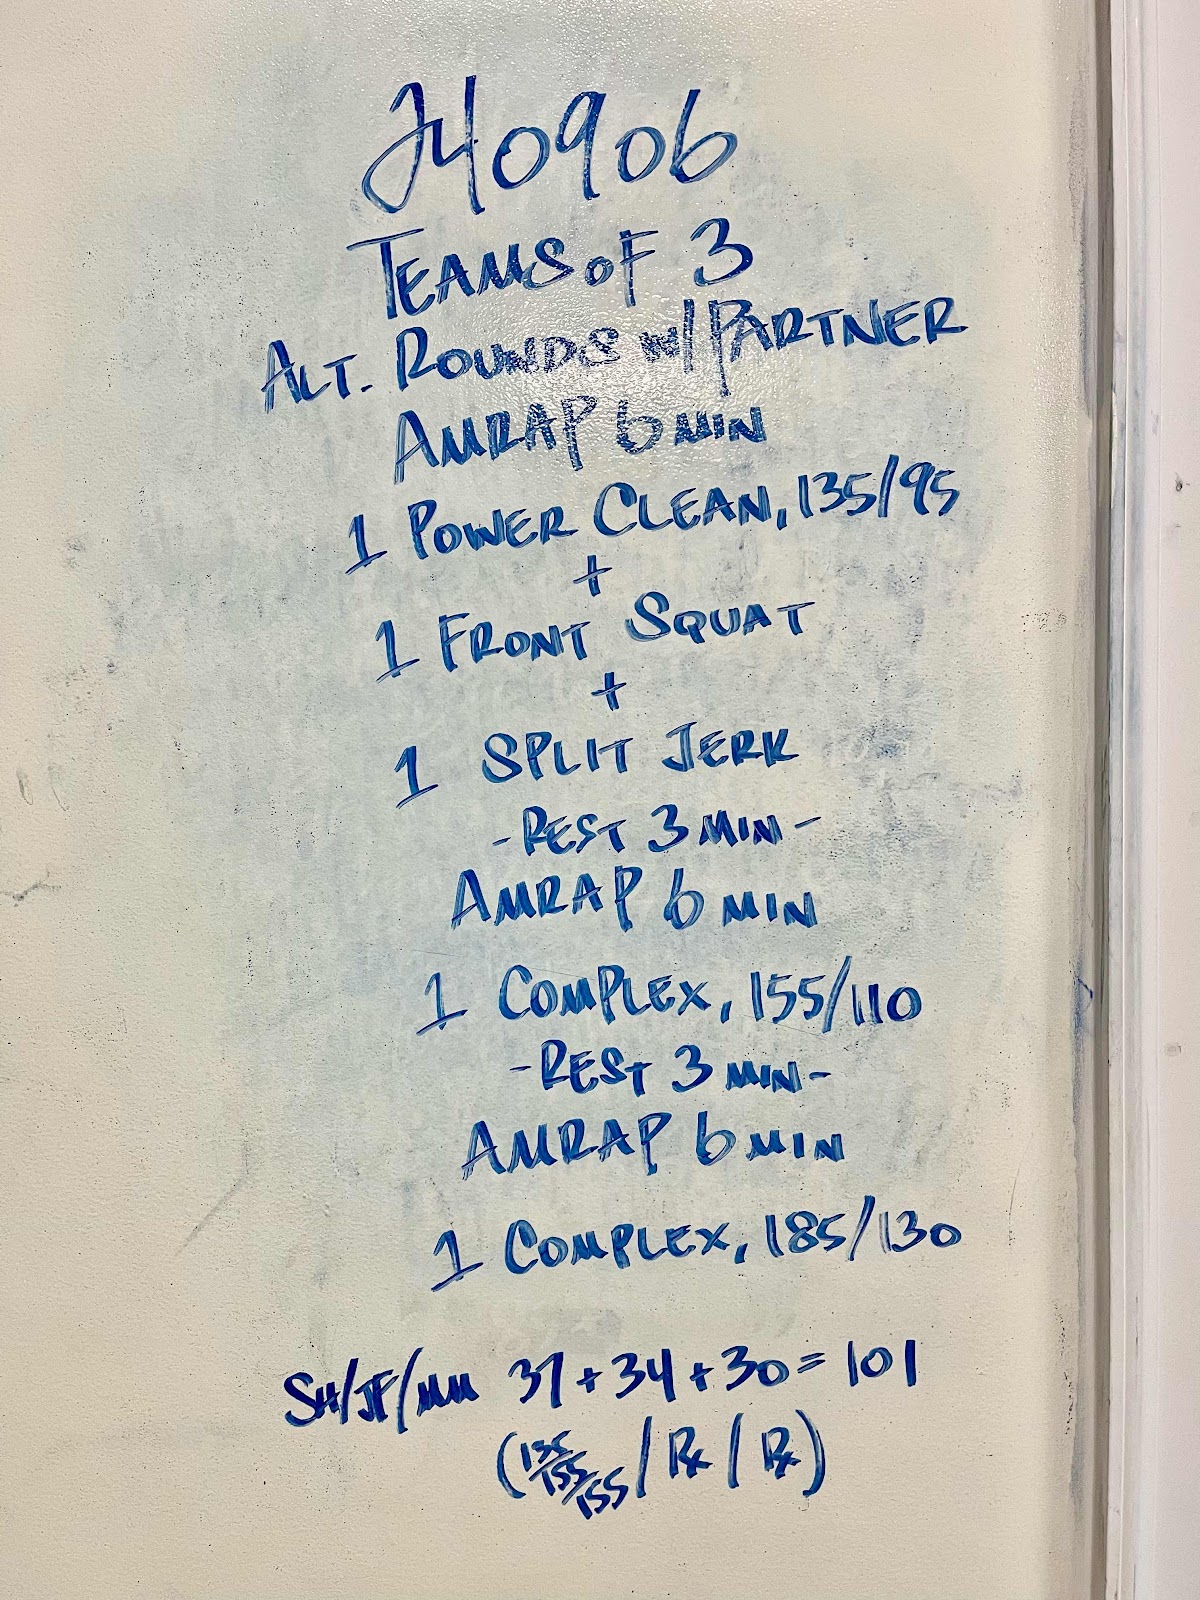 240906
TEAMS OF 3
ALT. ROUNDS W/ PARTNER
AMRAP 6 MIN
1 POWER CLEAN, 135/95
+
1 FRONT SQUAT
+
1 SPLIT JERK
-REST 3 MIN-
AMRAP 6 MIN
1 COMPLEX, 155/110
-REST 3 MIN-
AMRAP 6 MIN
1 COMPLEX, 185/130
SH/JF/MM 37+34+30=101
(135/155/155/Rx/Rx)